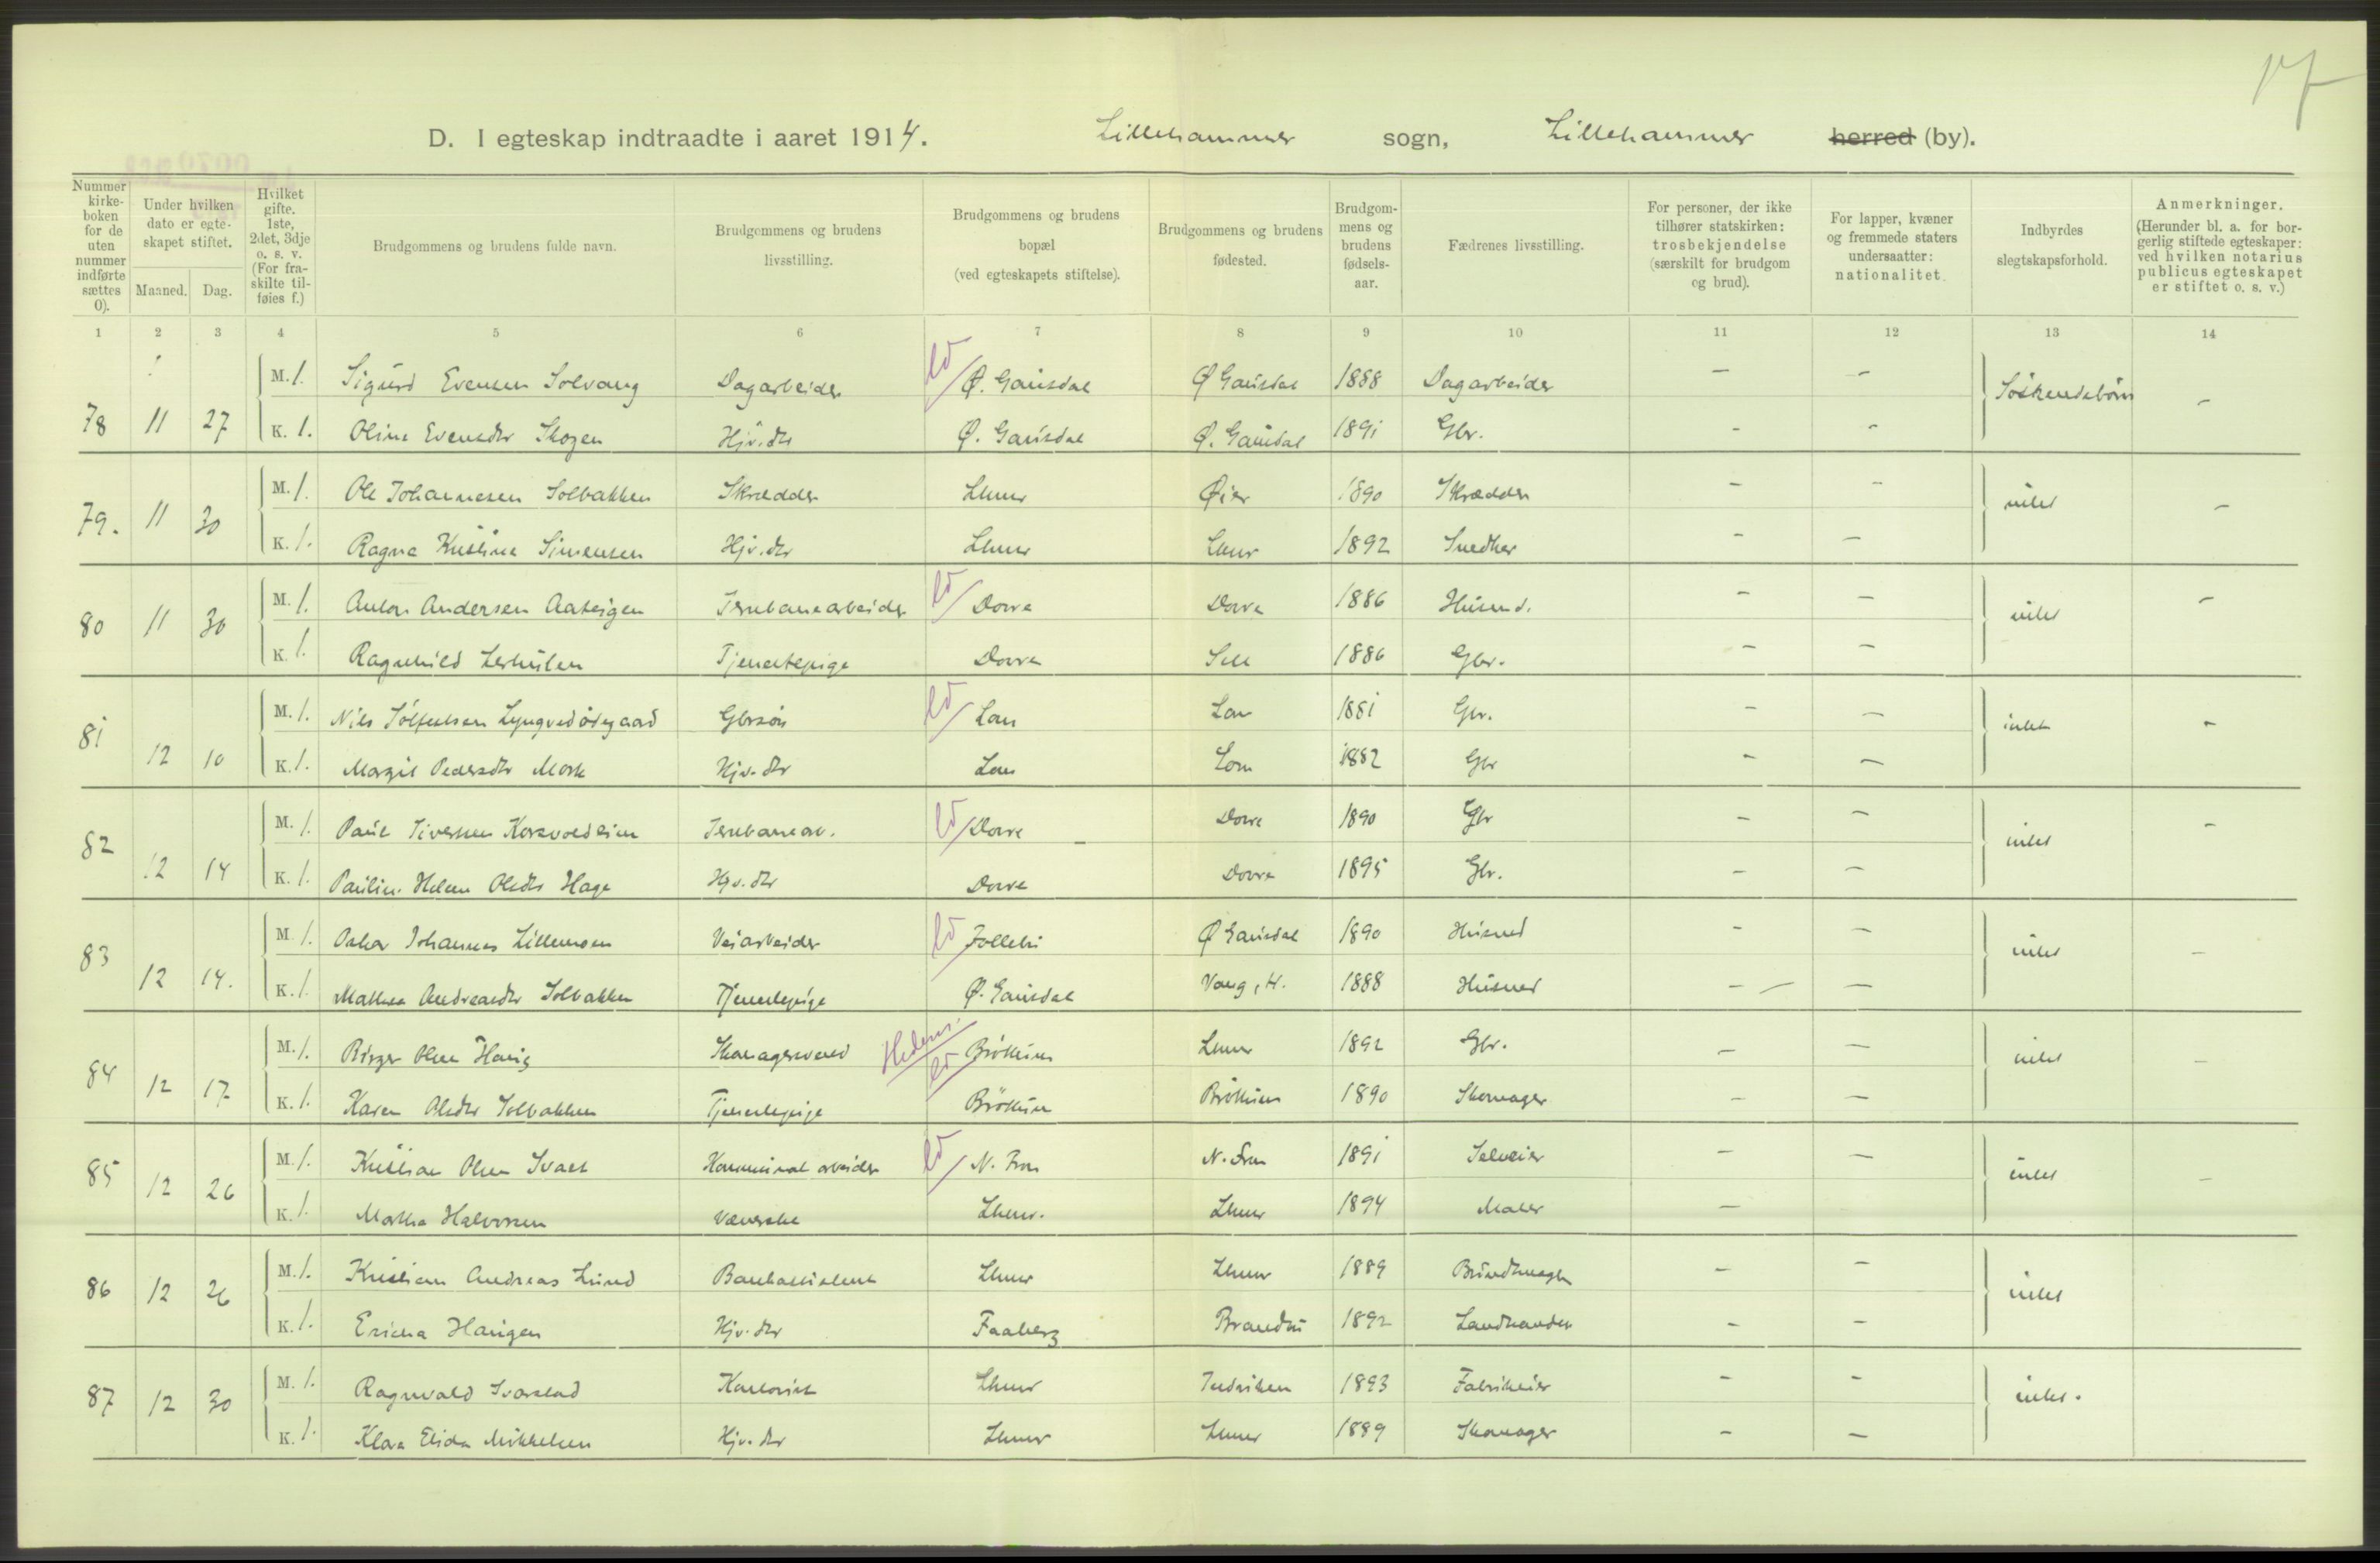 17
D. I egteskap indtraadte i aaret 1914. Lillehammer sogn, Lillehammer herred (by).
Nummer kirkeboken for de uten nummer indførte sættes 0).
Under hvilken dato er egteskapet stiftet.
Maaned. Dag.
Hvilket gifte. 1ste, 2det, 3dje o. s. v. (For fraskilte tilføies f.)
Brudgommens og brudens fulde navn.
Brudgommens og brudens livsstilling.
Brudgommens og brudens bopæl (ved egteskapets stiftelse).
Brudgommens og brudens fødested.
Brudgommens og brudens fødselsaar.
Fædrenes livsstilling.
For personer, der ikke tilhører statskirken: trosbekjendelse (særskilt for brudgom og brud).
For lapper, kvæner og fremmede staters undersaatter: nationalitet.
Indbyrdes slegtskapsforhold.
Anmerkninger. (Herunder bl. a. for borgerlig stiftede egteskaper: ved hvilken notarius publicus egteskapet er stiftet o. s. v.)
1 2 3 4 5 6 7 8 9 10 11 12 13 14
M. 1. Sigurd Evensen Solvang Dagarbeider Ø. Gausdal Ø Gausdal 1888 Dagarbeider - - Søskendebørn -
78 11 27 K. 1. Oline Evensdtr Skogen Hjv. dtr Ø. Gausdal Ø. Gausdal 1891 Gbr. - -
M. 1. Ole Johannesen Solbakken Skrædder Lhmr Øier 1890 Skrædder - - intet -
79. 11 30 K. 1. Ragna Kristine Simensen Hjv. dtr Lhmr Lhmr 1892 Snedker - -
M. 1. Anton Andersen Aateigen Jernbanearbeider Dovre Dovre 1886 Husmd. - - intet -
80 11 30 K. 1. Ragnhild Lerhulen Tjenestepige Dovre Sell 1886 Gbr. - -
81 M. 1. Nils Lyngvedødegaard Gbrsøn Lom Lom 1881 Gbr. - - intet -
12 10 K. 1. Margit Pedersdtr Mork Hjv. dtr Lom Lom 1882 Gbr - -
82 M. 1. Paul Siversen Korsvoldeim Jernbanearb. Dovre Dovre 1890 Gbr - - intet -
12 14 K. 1. Pauline Helene Olsdtr Hage Hjv. dtr Dovre Dovre 1895 Gbr. - -
83 M. 1. Oskar Johannes Lillemoen Veiarbeider Follebu Ø Gausdal 1890 Husmd - - intet -
12 14. K. 1. Mathea Andreasdtr Solbakken Tjenestepige Ø. Gausdal Vang, H. 1888 Husmd - -
84 M. 1. Birger Olsen Haug Skomagersvend Hedem. Brøttum Lhmr 1892 Gbr. - - intet -
12 17 K. 1. Karen Olsdtr Solbakken Tjenestepige Brøttum Brøttum 1890 Skomager - -
85 M. 1. Kristian Olsen Svart Kommunalarbeider N. Fron N. Fron 1891 Selveier - - intet -
12 26 K. 1. Martha Halvorsen Væverske Lhmr. Lhmr 1894 Maler -
M. 1. Kristian Andreas Lund Bankassistent Lhmr Lhmr 1889 Bundtmager - - intet
86 12 26 K. 1. Ericha Haugen Hjv. dtr Faaberg Brandbu 1892 Landhandler - -
M. 1. Ragnvald Svarstad Kontorist Lhmr 1893 Fabrikeier - - intet.
87 12 30 K. 1. Klara Elida Mikkelsen Hjv. dtr Lhmr Lhmr 1889 Skomager - -